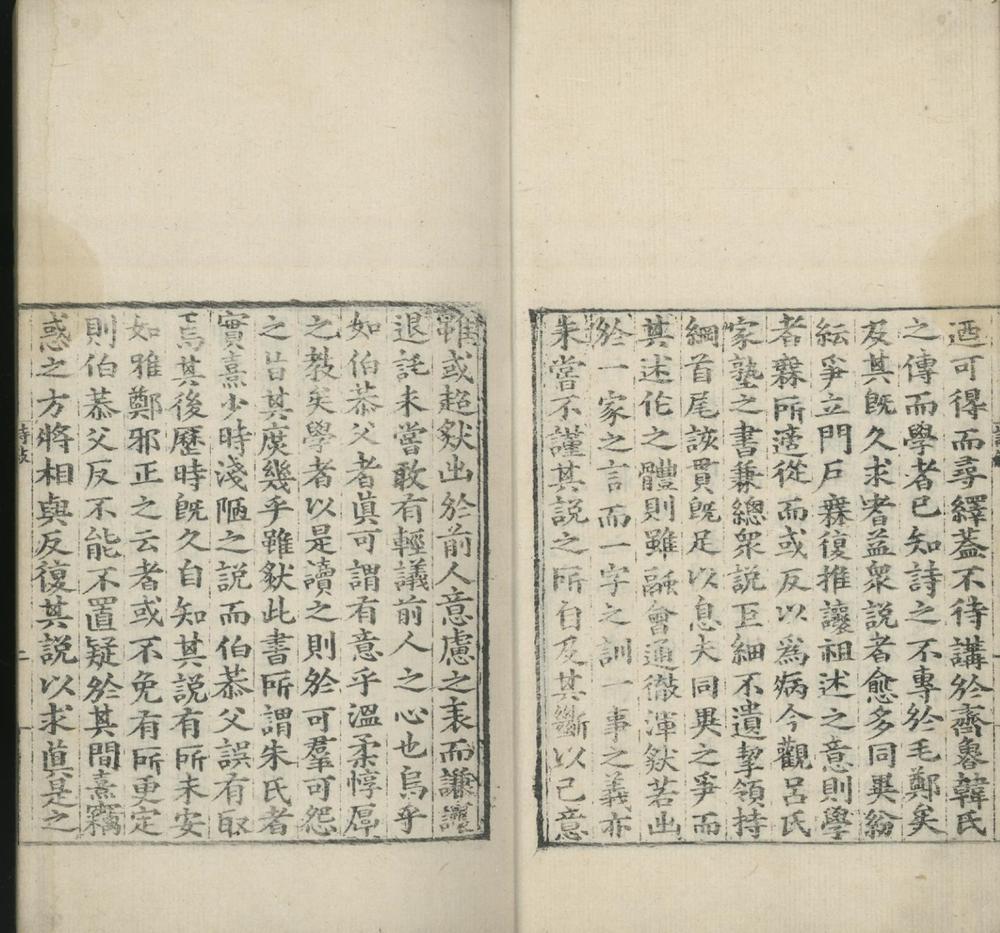 迺可得而尋繹葢不待講於齊魯韓氏
之傳而學者已知詩之不專於毛鄭矣
及其旣久求者益衆說者愈多同異紛
紜爭立門戶無復推讓祖述之意則學
者無所適從而或反以爲病今觀呂氏
家塾之書兼總衆說巨細不遺挈領持
綱首尾該貫旣足以息夫同異之爭而
其述作之體則雖融會通徹渾然若出
於一家之言而一字之訓一事之義亦
未嘗不謹其說之所自及其斷以己意
雖或超然出於前人意慮之表而謙讓
退託未嘗敢有輕議前人之心也烏乎
如伯恭父者眞可謂有意乎溫柔惇厚
之敎矣學者以是讀之則於可羣可怨
之旨其庶幾乎雖然此書所謂朱氏者
實熹少時淺陋之說而伯恭父誤有取
焉其後歷時旣久自知其說有所未安
如雅鄭邪正之云者或不免有所更定
則伯恭父反不能不置疑於其間熹竊
惑之方將相與反復其說以求眞是之
二